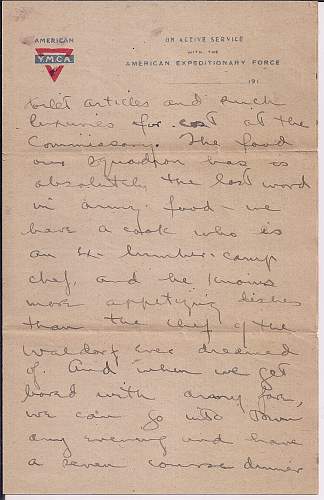 AMERICAN
Y.M.C.A
ON ACTIVE SERVICE
WITH THE
AMERICAN EXPEDITIONARY FORCE
191
toilet articles and such
luxuries for cost at the
Commissary. The food
our squadron has is
absolutely the last word
in army food - we
have a cook who is
an ex-lumber-camp
chef, and he knows
more appetizing dishes
than the chef of the
Waldorf ever dreamed
of. And when we get
bored with army fare,
we can go into town
any evening and have
a seven course dinner